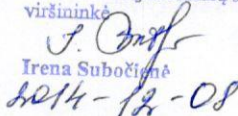 viršininkė
Irena Subočienė
2014-12-08